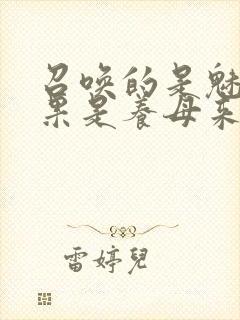 召唤的是魅
果是养母来
雷婷兒